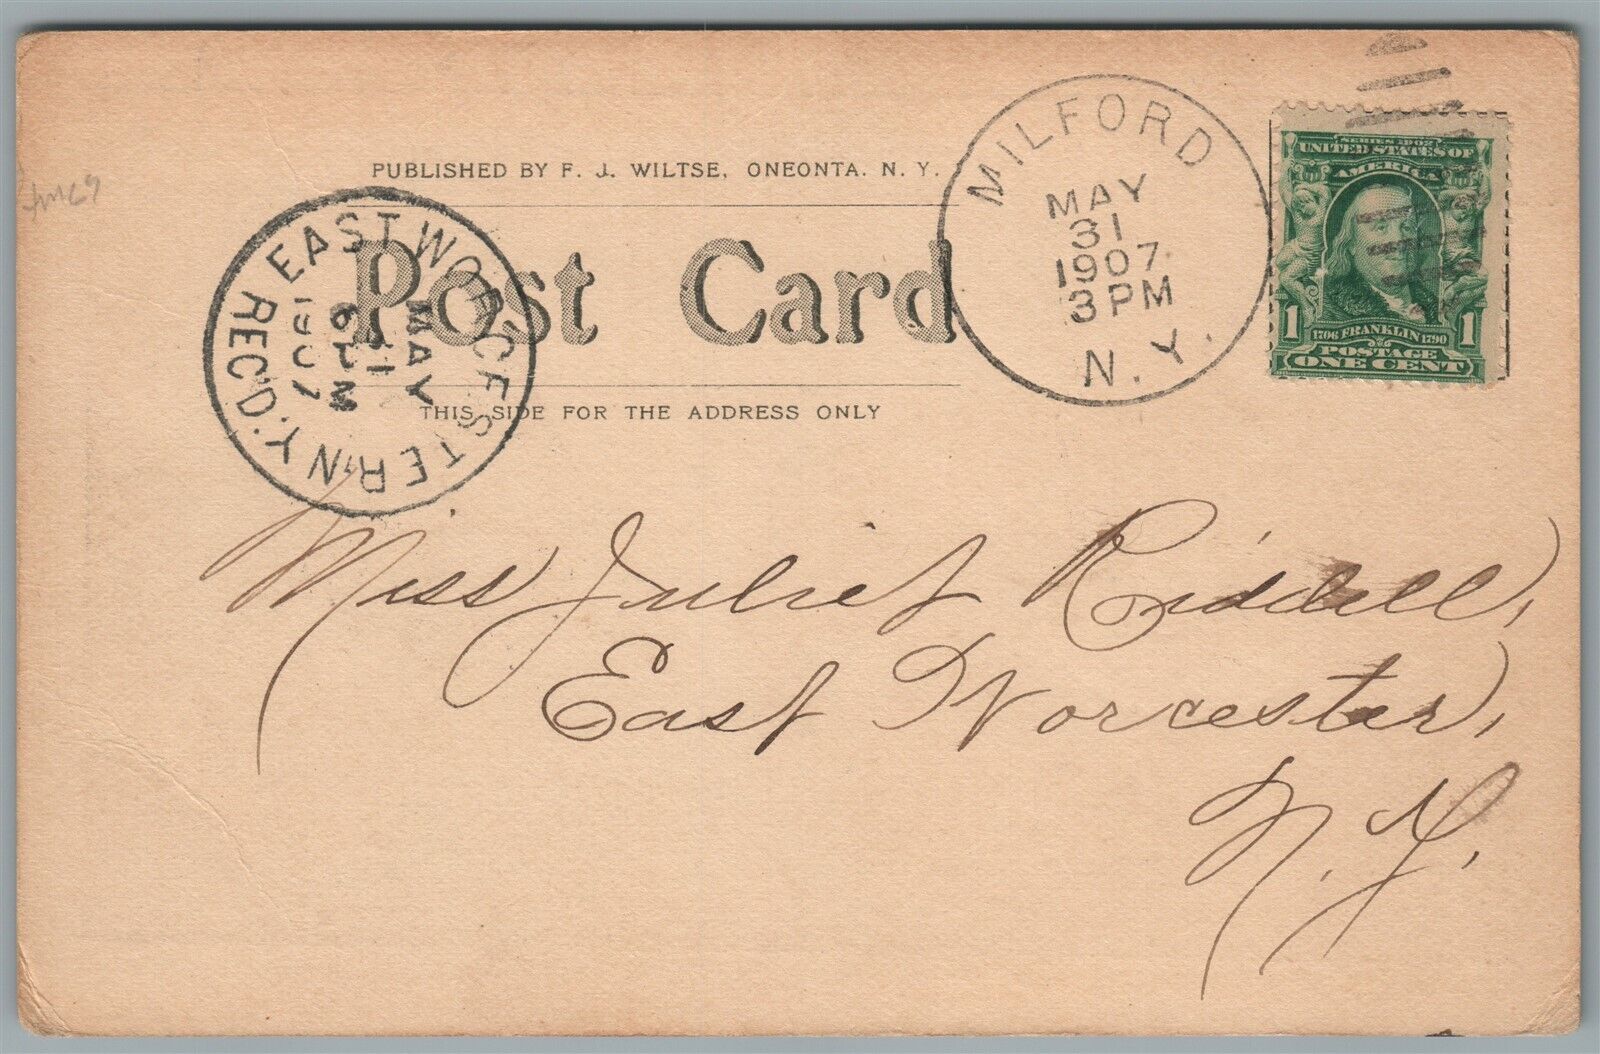 PUBLISHED BY F. J. WILTSE, ONEONTA, N. Y.
Post Card
THIS SIDE FOR THE ADDRESS ONLY
EAST WORCESTER N.Y. REC'D.
MAY
31
1907
MILFORD
MAY
31
1907.
3 PM
N. Y.
SERIES 1902
UNITED STATES OF
AMERICA
1 1706 FRANKLIN 1790 1
POSTAGE
ONE CENT
Miss Juliet Riddell,
East Worcester,
N. Y.